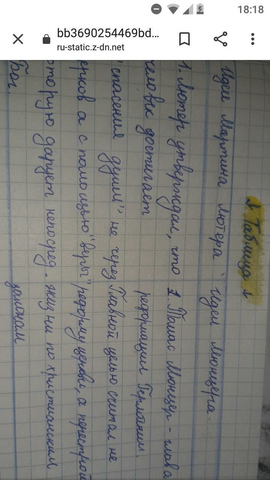 18:18
bb3690254469bd...
ru-static.z-dn.net
Таблица 1
Идеи Мартина Лютера Идеи Мюнцера.
1. Лютер утверждал, что 1. Томас Мюнцер - глава
человек достигает реформации Германии
"спасения души" не через Главной целью считал не
церковь а с помощью "веры" реформу церкви, а
которую дарует непосред. жизни по христианским
Бог законам